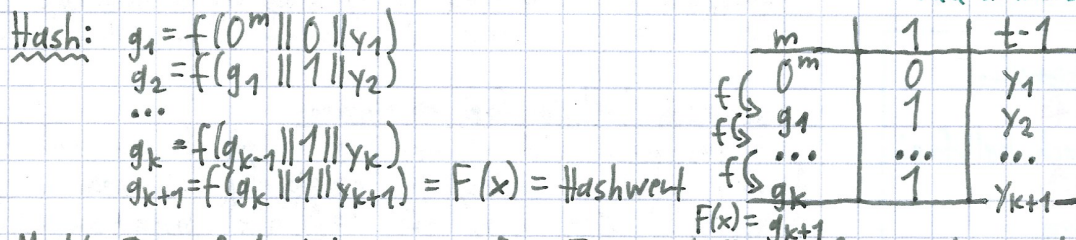 Hash: g₁ = f(0ᵐ || 0 || y₁)
g₂ = f(g₁ || 1 || y₂)
...
gₖ = f(gₖ₋₁ || 1 || yₖ)
gₖ₊₁ = f(gₖ || 1 || yₖ₊₁) = F(x) = Hashwert
m | 1 | t-1
0ᵐ | 0 | y₁
f g₁ | 1 | y₂
f ... | ... | ...
f gₖ | 1 | yₖ₊₁
F(x) = gₖ₊₁